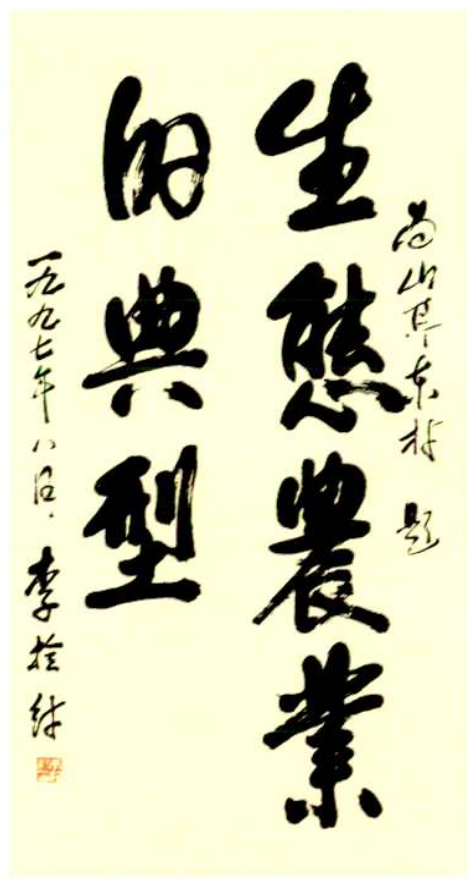 山东村 题
生態農業
的典型
一九九七年八月 李